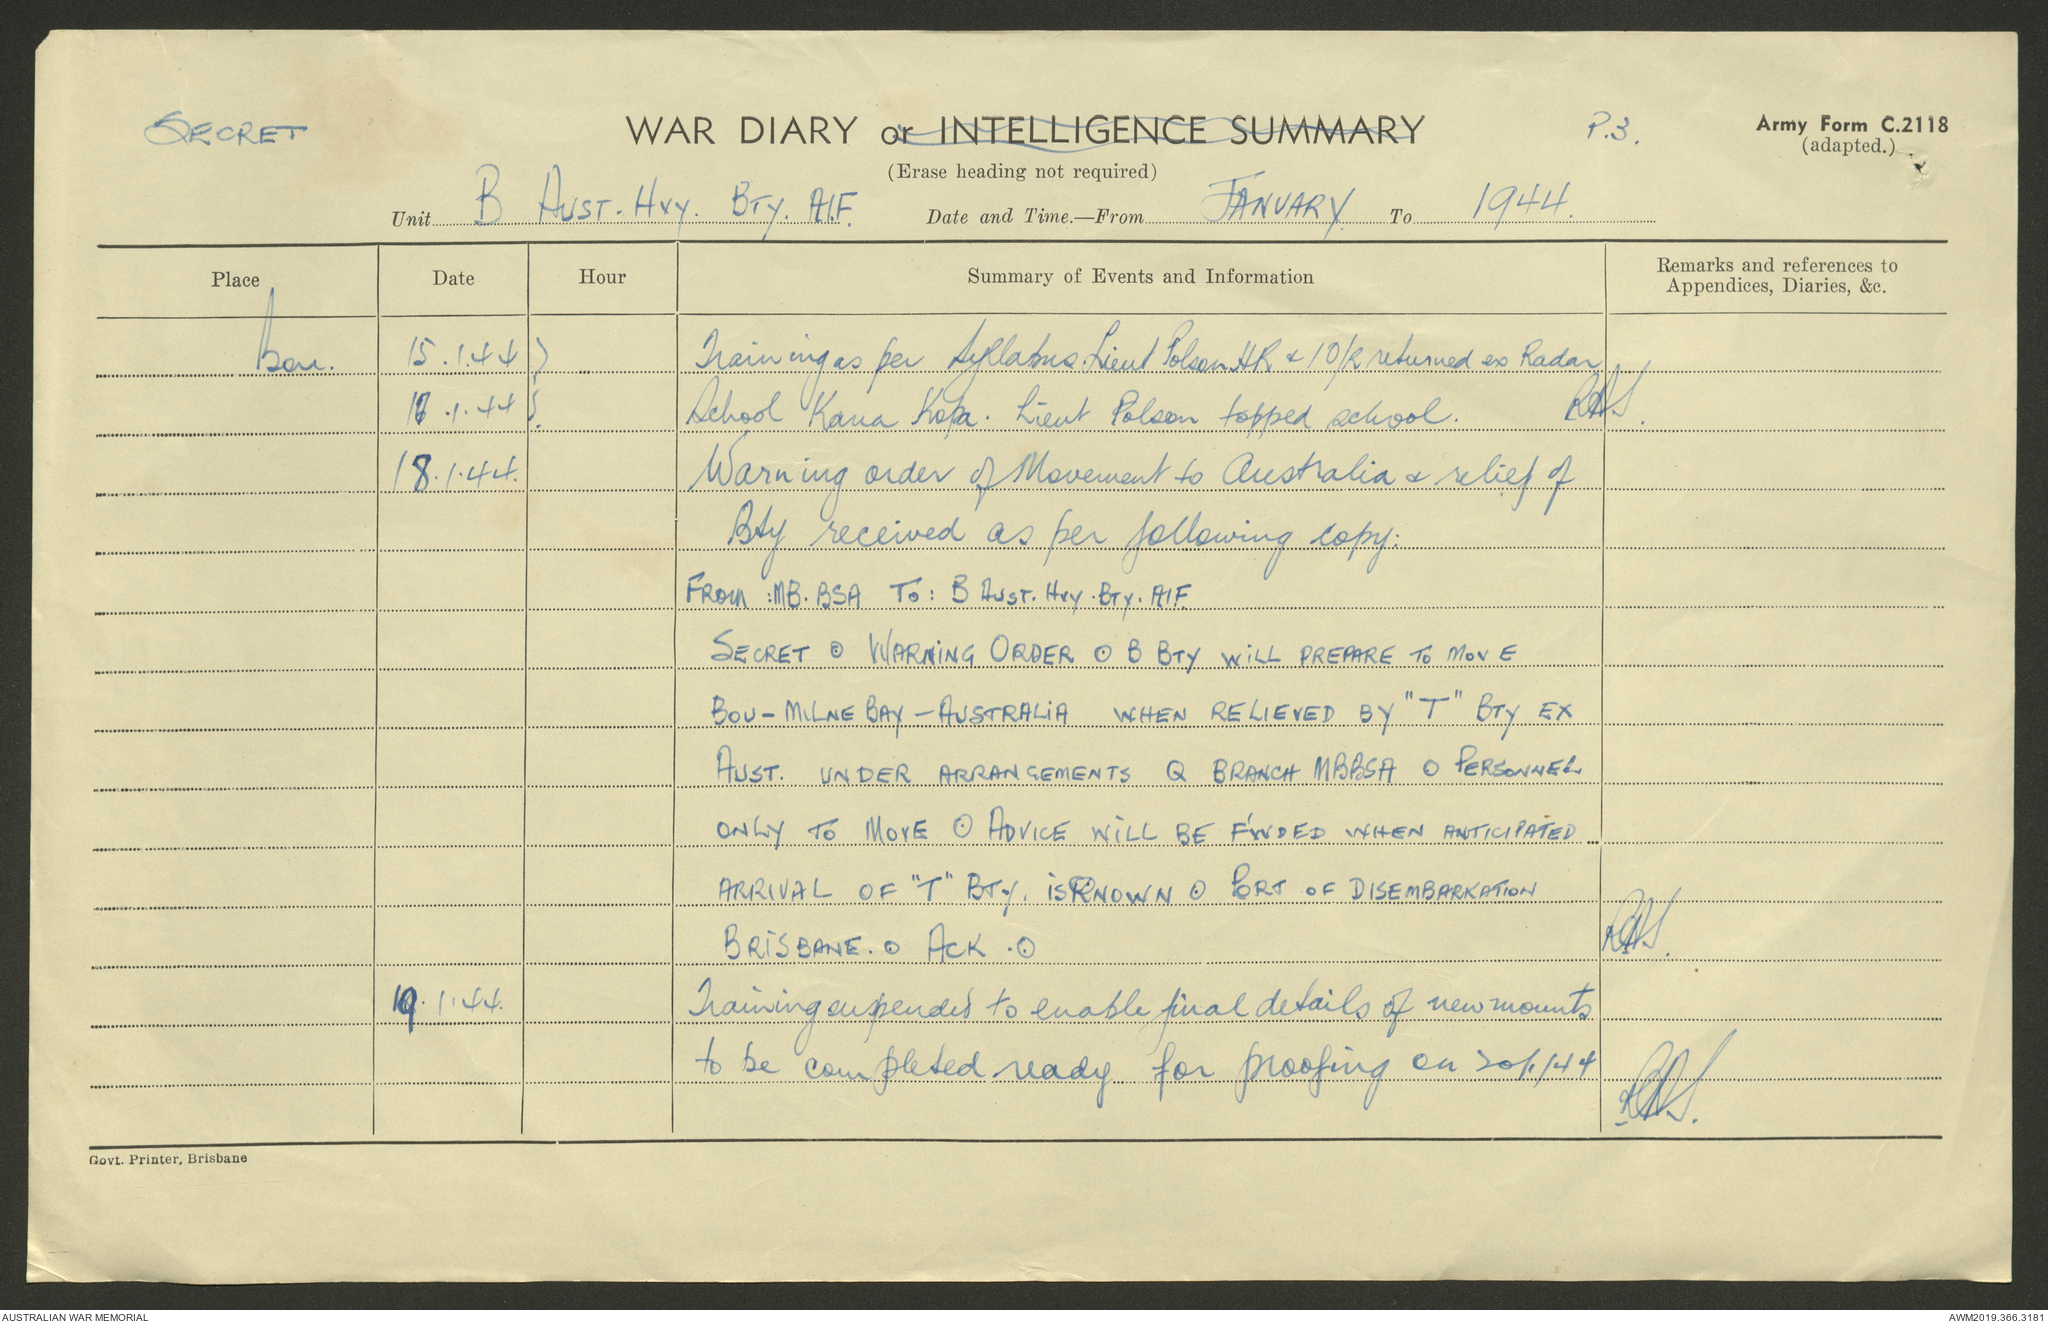 SECRET
WAR DIARY or INTELLIGENCE SUMMARY
P.3.
Army Form C.2118
(adapted.)
(Erase heading not required)
Unit B AUST. HVY. BTY. AIF. Date and Time.—From JANUARY To 1944.
Place Date Hour Summary of Events and Information Remarks and references to
Appendices, Diaries, &c.
Bou. 15.1.44 } Training as per Syllabus. Lieut Polson HR & 1 O/R returned ex Radar
.1.44 } School Kana Kopa. Lieut Polson topped school. RAS.
18.1.44. Warning order of Movement to Australia & relief of
Bty received as per following copy:
FROM: MB.BSA TO: B AUST. HVY. BTY. AIF.
SECRET ⊙ WARNING ORDER ⊙ B BTY WILL PREPARE TO MOVE
BOU – MILNE BAY – AUSTRALIA WHEN RELIEVED BY "T" BTY EX
AUST. UNDER ARRANGEMENTS Q BRANCH MBBSA ⊙ PERSONNEL
ONLY TO MOVE ⊙ ADVICE WILL BE F'WDED WHEN ANTICIPATED
ARRIVAL OF "T" BTY. IS KNOWN ⊙ PORT OF DISEMBARKATION
BRISBANE. ⊙ ACK. ⊙ RAS.
19.1.44. Training suspended to enable final details of new mounts
to be completed ready for proofing on 20/1/44
RAS.
Govt. Printer, Brisbane
AUSTRALIAN WAR MEMORIAL
AWM2019.366.3181